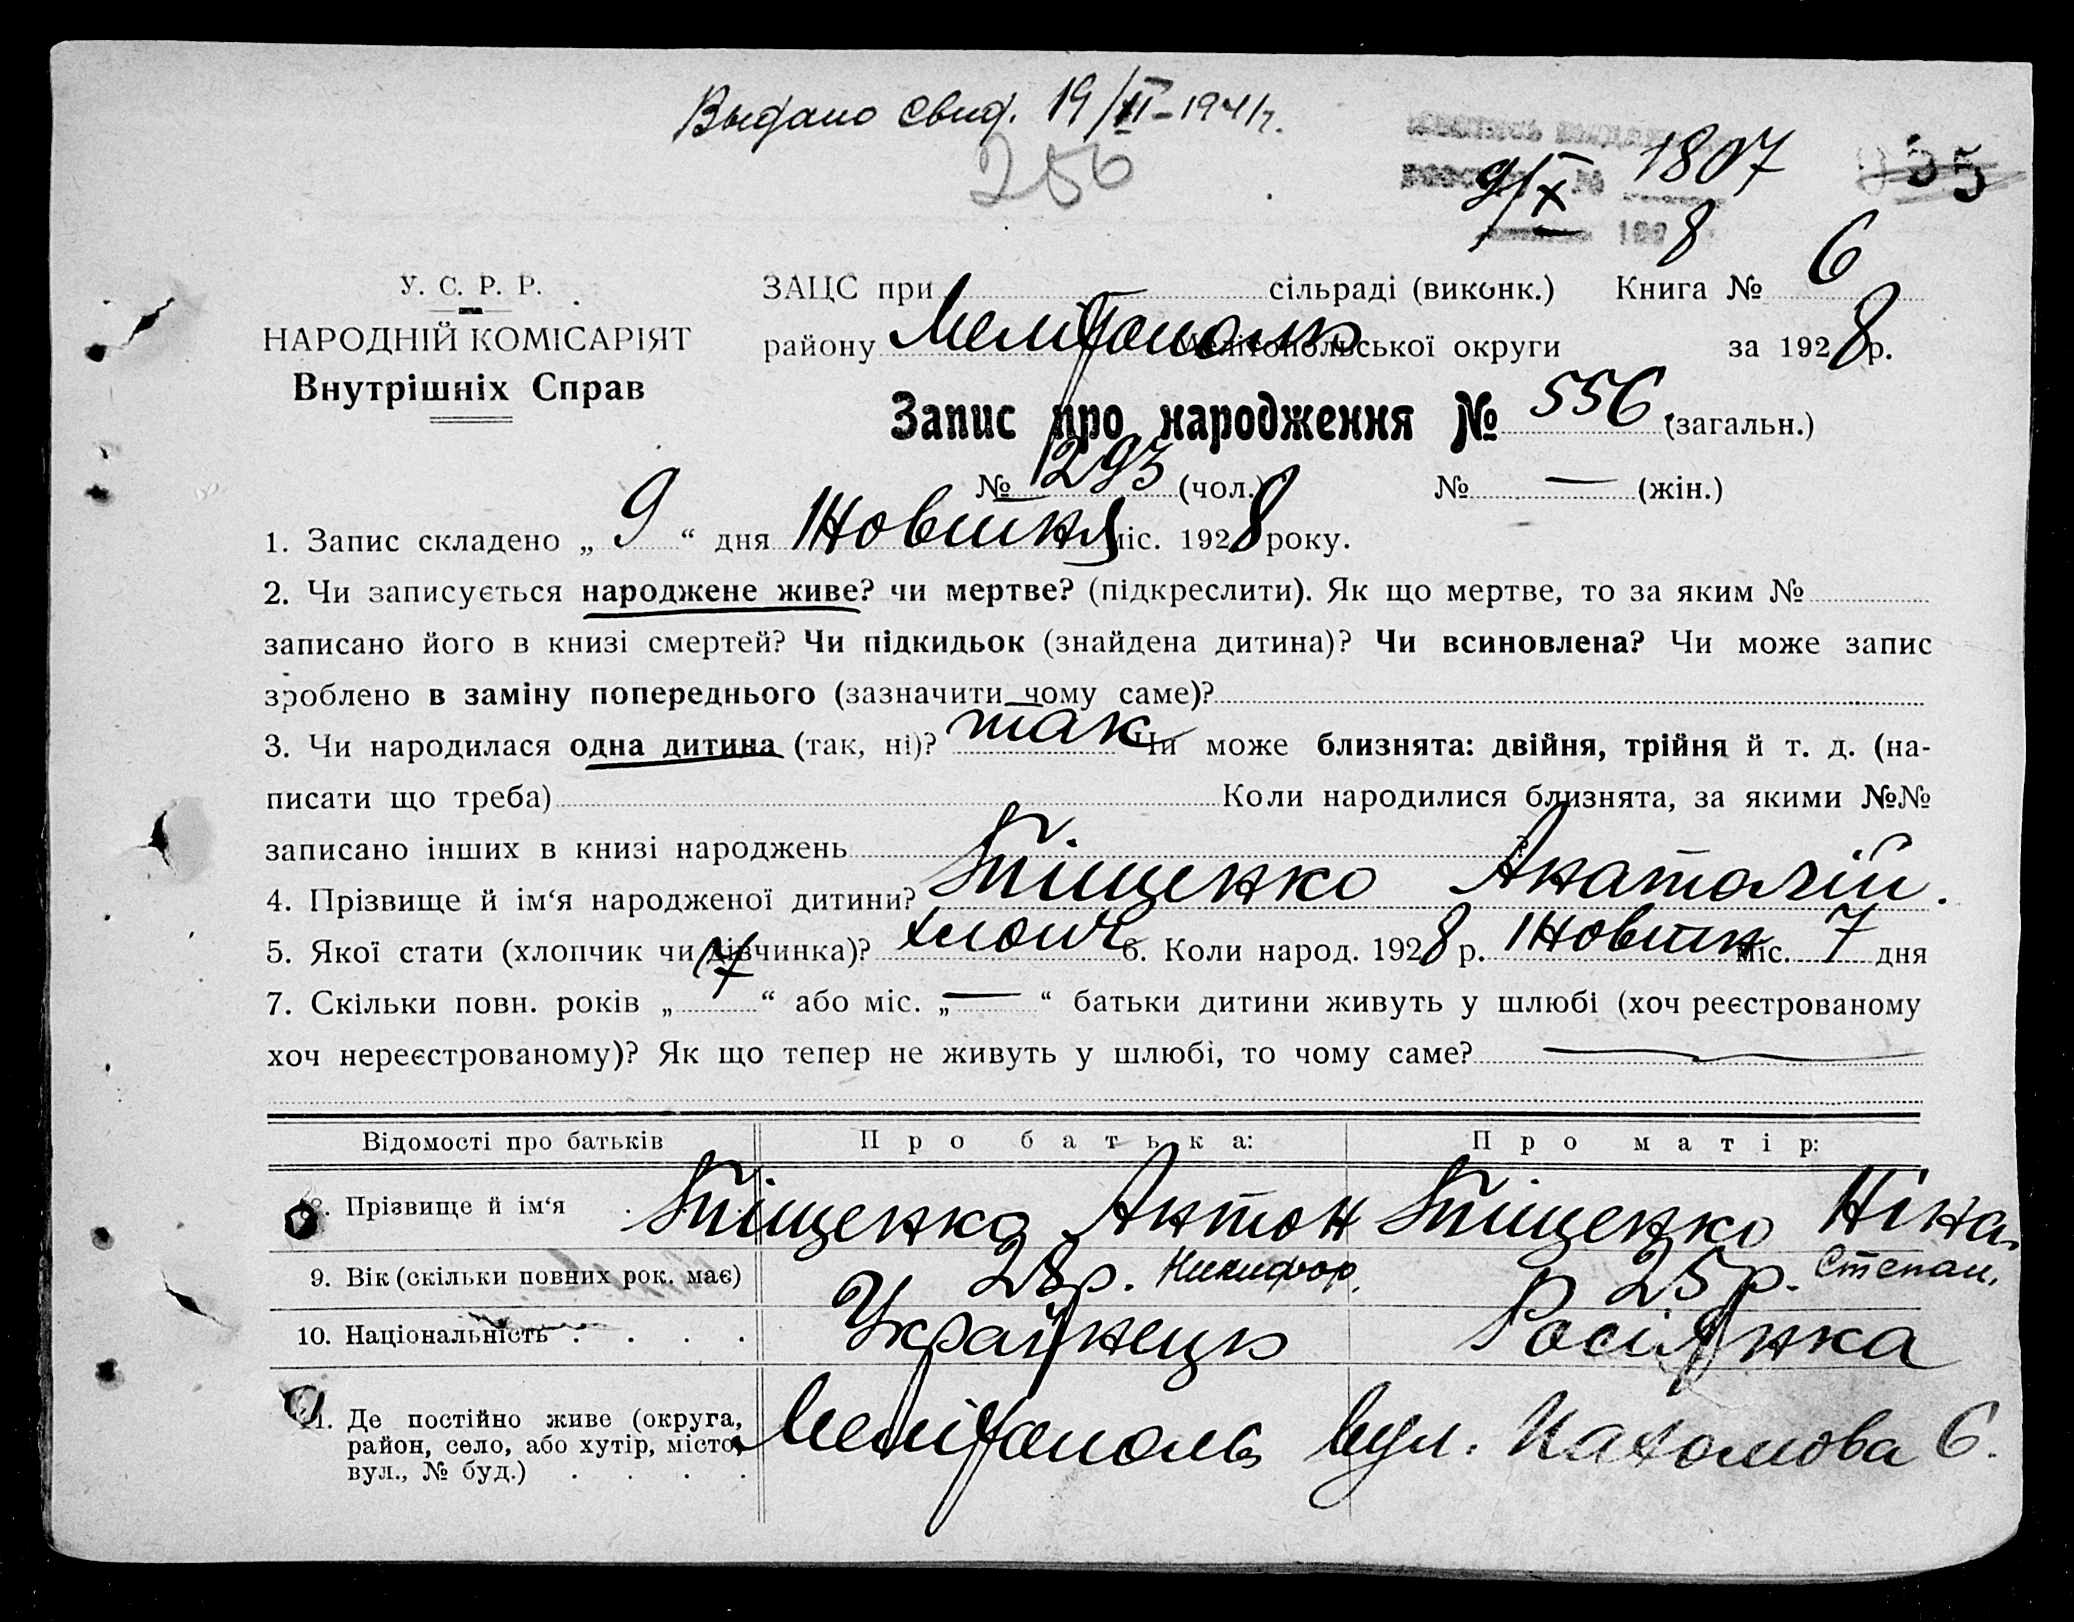 Выдано свид. 19/II-1941г.
256
9/X 1807
192 8
У. С. Р. Р.
НАРОДНІЙ КОМІСАРІЯТ
Внутрішніх Справ
ЗАЦС при сільраді (виконк.) Книга № 6
району Мелітополь Мелітопольської округи за 1928 р.
Запис про народження № 556 (загальн.)
№ 293 (чол.) № — (жін.)
1. Запис складено „ 9 “ дня Жовтня міс. 1928 року.
2. Чи записується народжене живе? чи мертве? (підкреслити). Як що мертве, то за яким №
записано його в книзі смертей? Чи підкидьок (знайдена дитина)? Чи всиновлена? Чи може запис
зроблено в заміну попереднього (зазначити чому саме)?
3. Чи народилася одна дитина (так, ні)? так Чи може близнята: двійня, трійня й т. д. (на-
писати що треба) Коли народилися близнята, за якими №№
записано інших в книзі народжень ?
4. Прізвище й ім‘я народженої дитини? Тіщенко Анатолій.
5. Якої стати (хлопчик чи дівчинка)? хлопч 6. Коли народ. 1928 р. Жовтн міс. 7 дня
7. Скільки повн. років „ 7 “ або міс. „ — “ батьки дитини живуть у шлюбі (хоч реєстрованому
хоч нереєстрованому)? Як що тепер не живуть у шлюбі, то чому саме? —
Відомості про батьків Про батька: Про матір:
8. Прізвище й ім‘я Тіщенко Антон Тіщенко Ніна
9. Вік (скільки повних рок. має) 28 р. Никифор. 25 р. Степан.
10. Національність Українець Росіянка
11. Де постійно живе (округа,
район, село, або хутір, місто,
вул., № буд.)
Мелітополь вул. Пахомова 6.